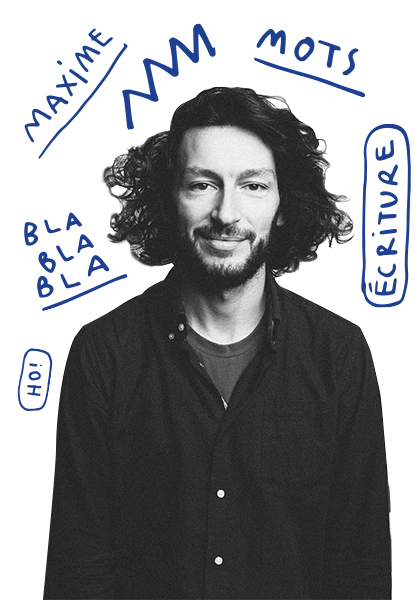 MAXIME
MOTS
ÉCRITURE
BLA
BLA
BLA
HO!